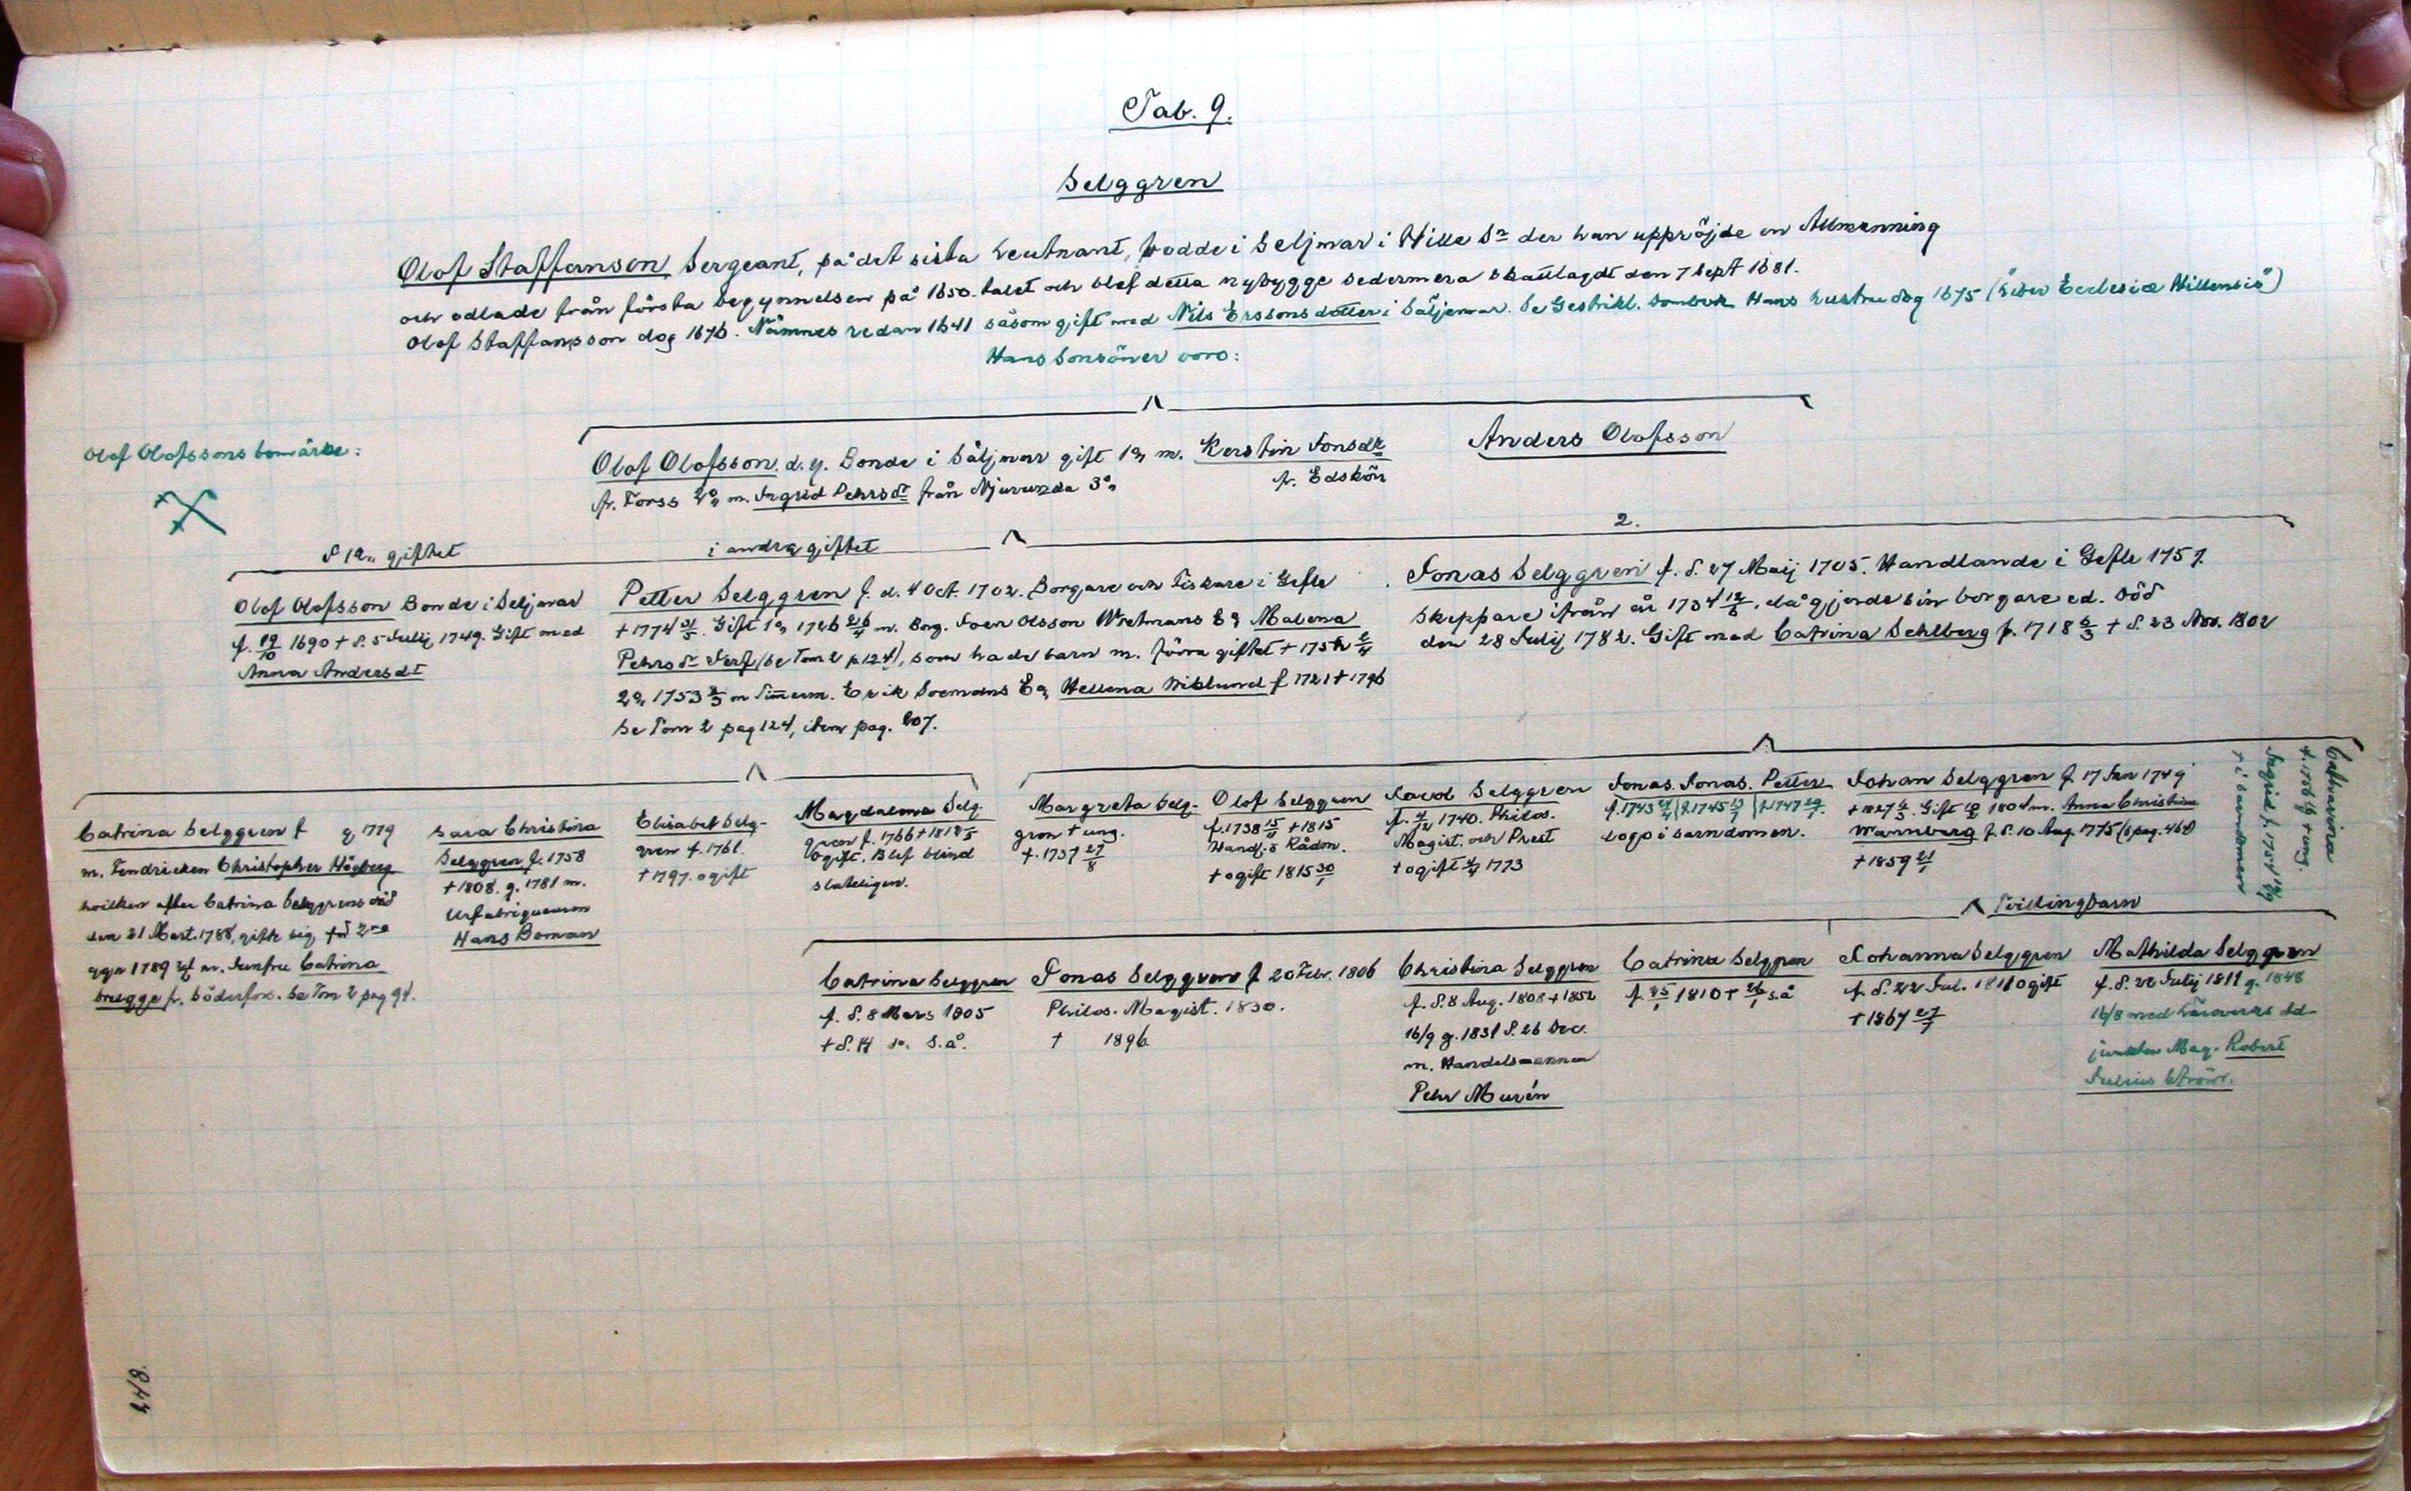 Tab. 9.
Selggren
Olof Staffanson Sergeant, på det sista Leutnant, bodde i Seljmar i Hille Sn der han uppröjde en Allmenning
och odlade från första begynnelsen på 1650. talet och blef detta nybygge sedermera skattlagdt den 7 Sept 1681.
Olof Staffansson dog 1676. Nämnes redan 1641 såsom gift med Nils Erssons dotter i Säljemar. Se Gestrikl. Dombok Hans hustru dog 1675 ("Liber Ecclesiæ Hillensis")
Hans sonsöner voro:
Olof Olofssons bomärke:
Olof Olofsson. d.y. Bonde i Säljmar gift 1o m. Kerstin Jonsdr
fr. Forss 2o m. Ingrid Pehrsdr från Njurunda 3o
fr. Edskön
Anders Olofsson
i andra giftet
2.
Olof Olofsson Bonde i Seljmar
f. 19/10 1690 + d. 5 Julij 1749. Gift med
Anna Andersdr
Petter Selggren f. d. 4 Oct. 1702. Borgare och Fiskare i Gefle
+ 1774. Gift 1o 1726 26/4 m. Borg. Olsson Wretmans Ea Malena
Pehrsdr (se Tom 2 p 124), som hade barn m. förra giftet +
2o 1753 m Timerm. Erik Soemans Ea Hellena Wiklund f 1721 + 1796
Se Tom 2 pag 124, item pag. 607.
Jonas Selggren f. d. 27 Maij 1705. Handlande i Gefle 1757.
Skeppare ifrån år 1734, då gjorde sin borgare ed. Död
den 28 Julij 1782. Gift med Catrina Sehlberg f. 1718 6/3 + d. 23 Nov. 1802
Catrina Selggren f g 1779
m. Fendricken Christopher Högberg
hvilken after Catrina Selggrens död
den 21 Mart. 1788, gifte sig
1789 m. Junfru Catrina
Brugge fr. Söderfors. Se Tom 2 pag 94.
Sara Christina
Selggren f. 1758
+ 1808. g. 1781 m.
Urfabriqueuren
Hans Boman
Elisabet Selg-
gren f. 1761.
+ 1797. ogift
Magdalena Selg-
gren f. 1766 +
Ogift. Blef blind
slutligen.
Margreta Selg-
gren + ung.
f. 1737 27/8
Olof Selggren
f. 1738 + 1815
Handl. o Rådm.
+ ogift 1815 30/1
David Selggren
f. 4/12 1740. Philos.
Magist. och Prest
+ ogift 1773
Jonas. Jonas. Petter
f. 1743 f. 1745 f. 1747
dogo i barndomen.
Johan Selggren f. 17 Jan 1749
+ 1827. Gift 1804 m. Anna Christina
Warnberg f. d. 10 Aug. 1775 (s pag. 468)
+ 1859 21/1
Catharina
+ ung.
Ingrid f. 1754
+ i barndomen
Tvillingbarn
Catrina Selggren
f. d. 8 Mars 1805
+ d. 14 s.å.
Jonas Selggren f 20 Febr. 1806
Philos. Magist. 1830.
+ 1896
Christina Selggren
f. d. 8 Aug. 1808 + 1852
16/9 g. 1831 d. 26 Dec.
m. Handelsmannen
Pehr Murén
Catrina Selggren
f. 25/1 1810 + 26/1 s.å
Johanna Selggren
f. d. 22 Jul. 1811 ogift
+ 1867 27/7
Mathilda Selggren
f. d. 22 Julij 1811 g. 1848
16/8 med Läroverks ad-
junkten Mag. Robert
Julius Ström.
248.